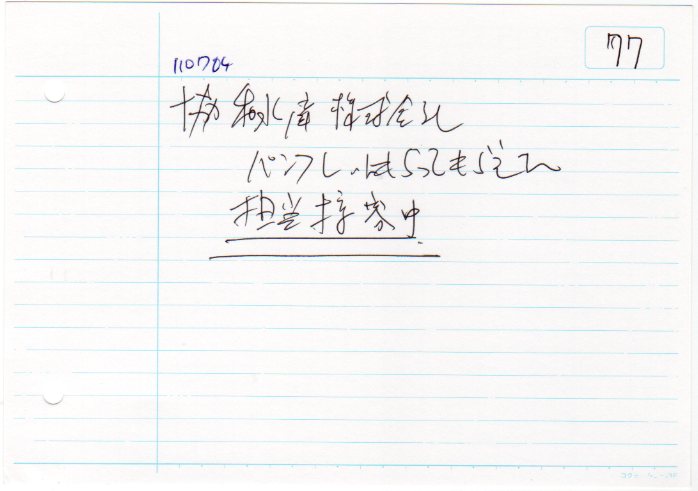 77
110704
協和水産株式会社
パンフレ、はもらってもらえた
担当接客中